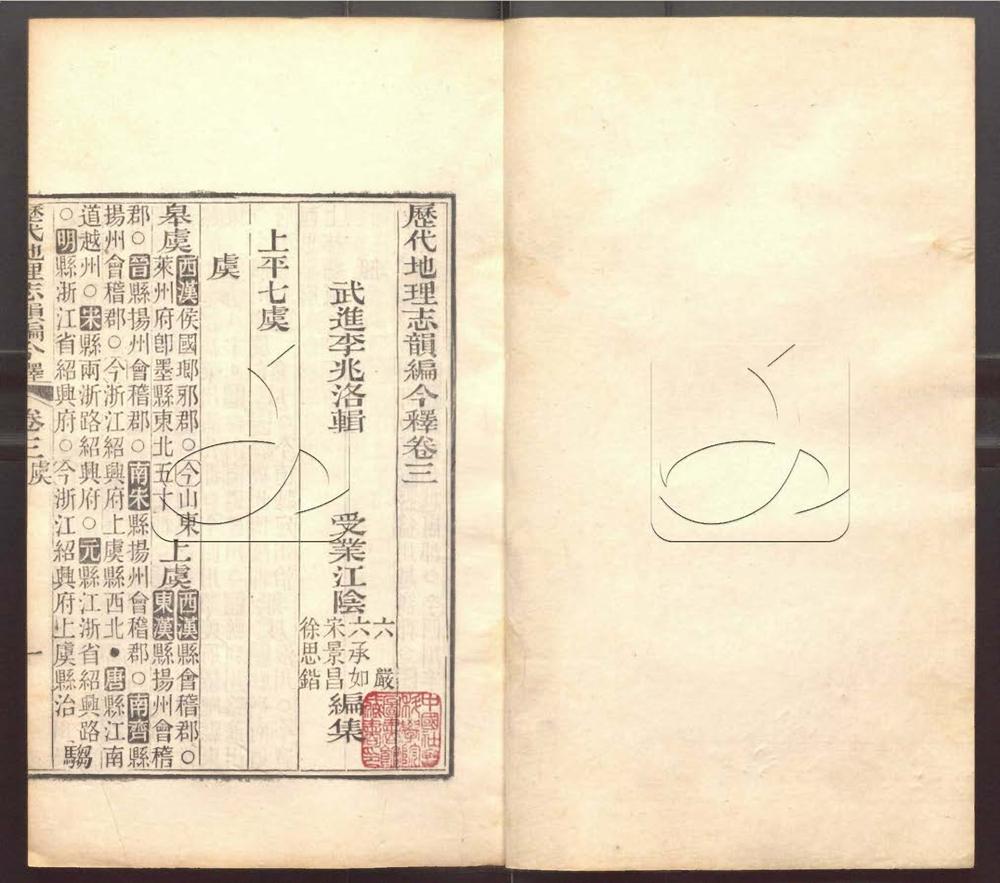 歷代地理志韻編今釋卷三
武進李兆洛輯
受業江陰
六嚴
六承如
宋景昌
徐思鍇
編集
上平七虞
虞
皋虞
西漢侯國瑯邪郡○今山東
萊州府卽墨縣東北五十
上虞
西漢縣會稽郡○
東漢縣揚州會稽
郡○晉縣揚州會稽郡○南宋縣揚州會稽郡○南齊縣
揚州會稽郡○今浙江紹興府上虞縣西北●唐縣江南
道越州○宋縣兩浙路紹興府○元縣江浙省紹興路
○明縣浙江省紹興府○今浙江紹興府上虞縣治
騶
歷代地理志韻編今釋
卷三虞
一